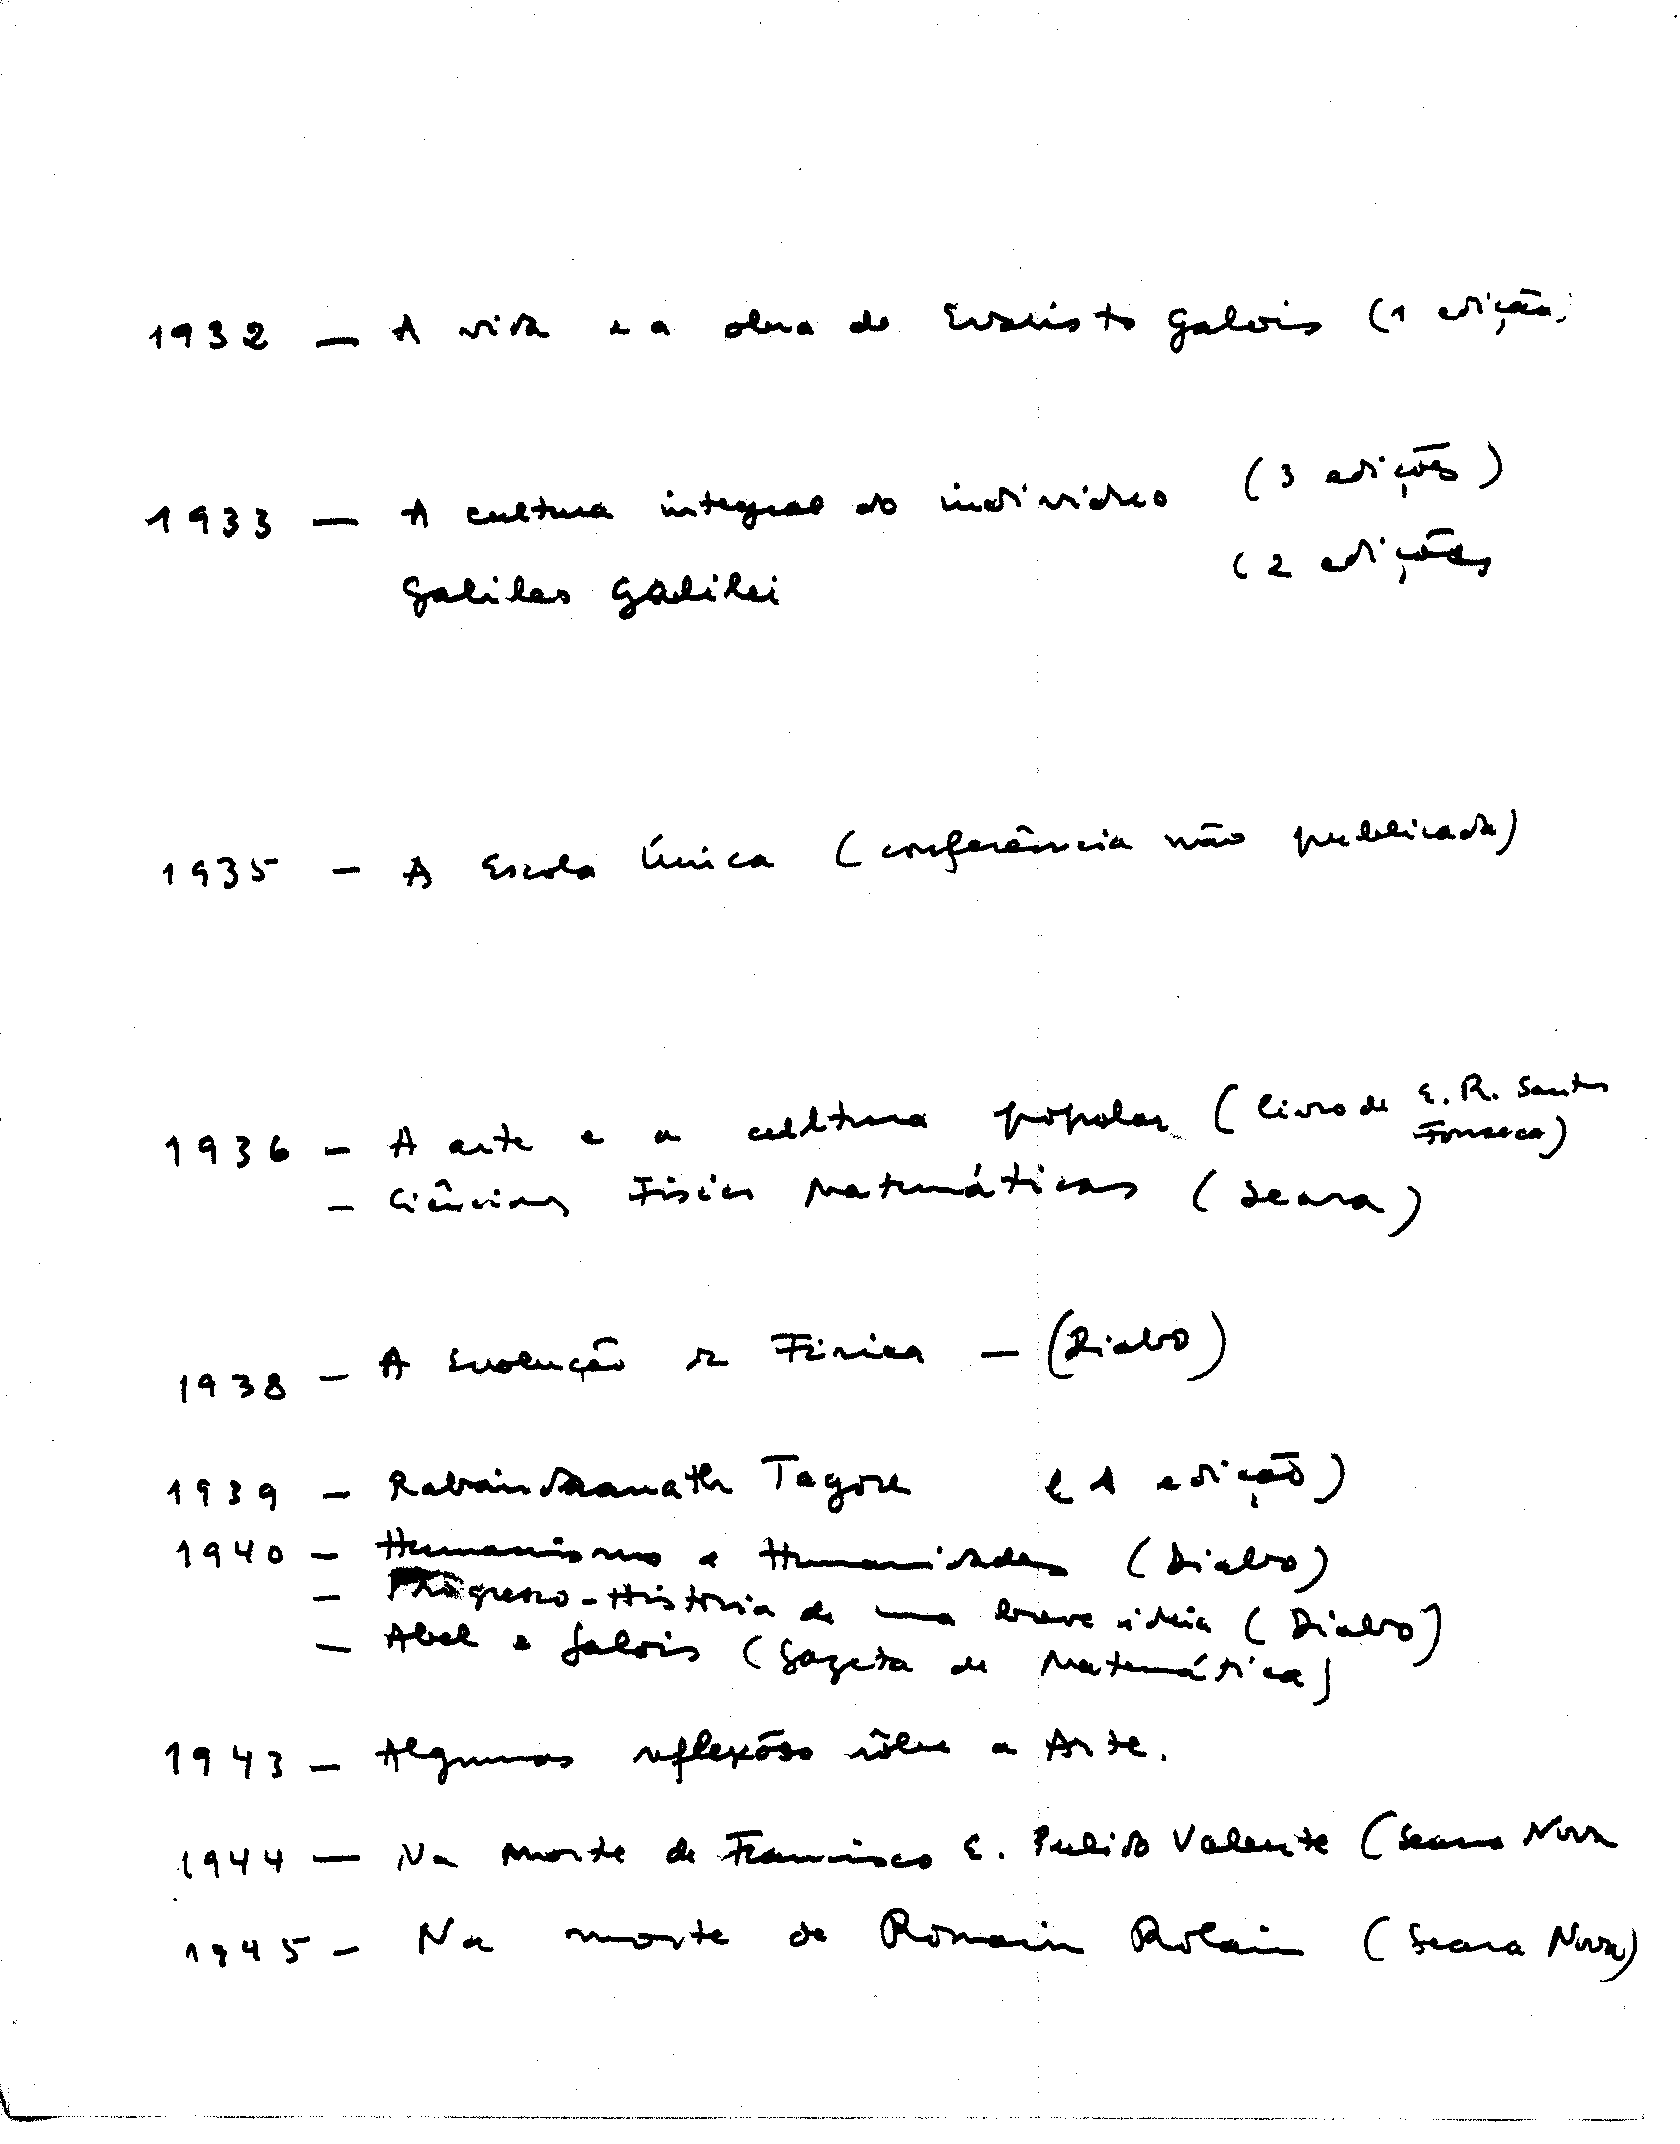 1932 — A vida e a obra de Evaristo Galois (1 edição)
1933 — A cultura integral do indivíduo (3 edições)
Galileo Galilei (2 edições
1935 - A Escola Única (conferência não publicada)
1936 - A arte e a cultura popular (livro de E. R. Santos Fonseca)
- Ciências Físico Matemáticas (Seara)
1938 - A Evolução da Física - (Diabo)
1939 - Rabindranath Tagore (1 edição)
1940 - Humanismo e Humanidades (Diabo)
- Progresso - História de uma breve ideia (Diabo)
- Abel e Galois (Gazeta de Matemática)
1943 - Algumas reflexões sôbre a Arte.
1944 - Na morte de Francisco E. Pulido Valente (Seara Nova
1945 - Na morte de Romain Rolain (Seara Nova)